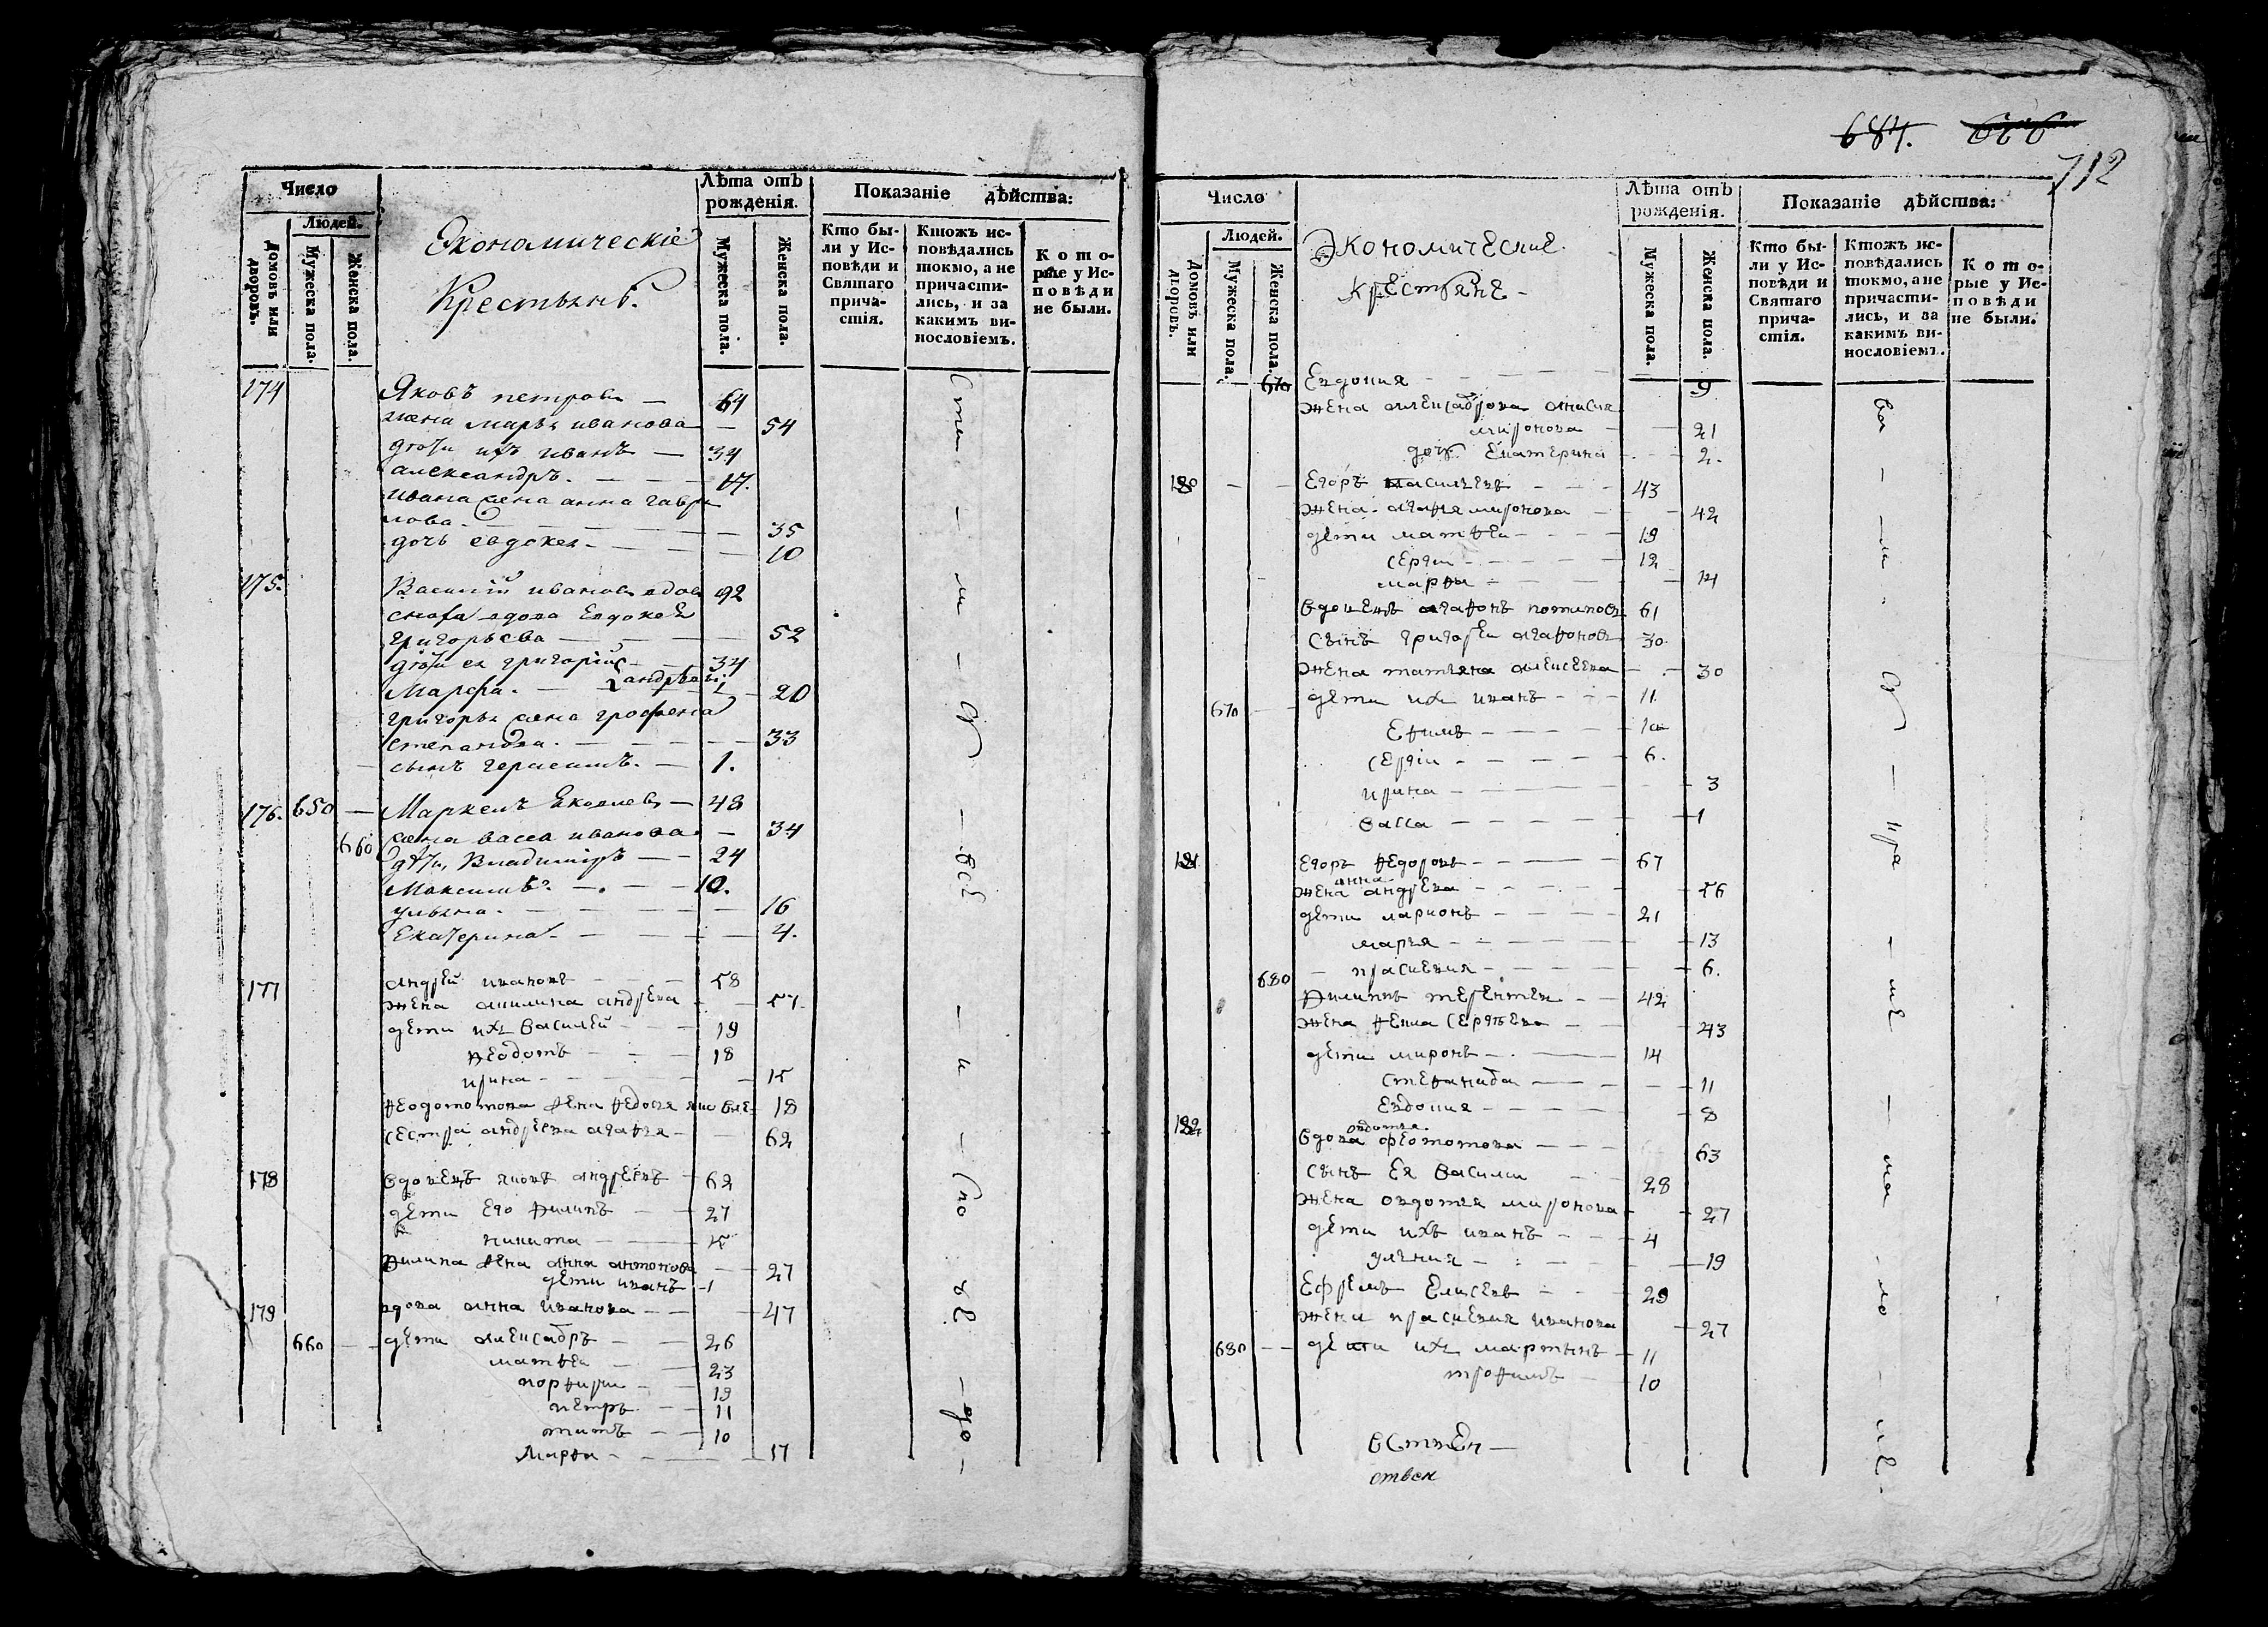 Число
Людей.
Домовъ или дворовъ.
Мужеска пола.
Женска пола.
Экономическіе
Крестьянѣ.
Лѣта отъ рожденія.
Мужеска пола.
Женска пола.
Показаніе дѣйства:
Кто бы-
ли у Ис-
повѣди и
Святаго
прича-
стія.
Ктожъ ис-
повѣдались
токмо, а не
причасти-
лись, и за
какимъ ви-
нословіемъ.
Кото-
рые у Ис-
повѣди
не были.
174 Яковъ петровъ — 64
жена марья иванова — 54
дѣти ихъ иванъ — 34
александръ. — 17.
ивана жена анна гаври
лова — 35
дочь евдокея — 10
175. Василій ивановъ вдов 92
сноха вдова Евдокея
григорьева — 52
дѣти ея григорій — 34
андрей 1
Марфа. — 20
григорья жена
степанова. — 33
сынъ герасимъ. — 1.
176. 650 — Маркелъ — 48
660 жена васса иванова — 34
дѣти, Владимиръ — 24
Максимъ — 10.
ульяна. — 16
Екатерина — 4.
177 андрей ивановъ — 58
жена акилина андреева — 57.
дети ихъ василей — 19
феодотъ — 18
ирина — 15
жена федосья 18
сестра андреева агафья — 62
178 вдовецъ яковъ андреевъ — 62
дети его филипъ — 27
никита — 15
филипа жена анна антонова — 27
дети иванъ — 1
179 вдова анна иванова — 47
660 — дети алексадръ — 26
матвеи — 23
порфири — 19
петръ — 11
титъ — 10
Марфа — 17
684. 666
712
Число
Людей.
Домовъ или дворовъ.
Мужеска пола.
Женска пола.
Экономические
крестьянѣ —
Лѣта отъ рожденія.
Мужеска пола.
Женска пола.
Показаніе дѣйства:
Кто бы-
ли у Ис-
повѣди и
Святаго
прича-
стія.
Ктожъ ис-
повѣдались
токмо, а не
причасти-
лись, и за
какимъ ви-
нословіемъ.
Кото-
рые у Ис-
повѣди
не были.
670 Евдокия — 9
жена алексадрова анисия
миронова — 21
дочь Екатерина — 2.
180 — Егоръ василевъ — 43
жена агафья миронова — 42
дети матвеи — 19
сергии — 12
марфа — 14
вдовецъ агафонъ потаповъ 61
сынъ григореи агафоновъ 30.
жена татьяна алексеева — 30
670 — дети ихъ иванъ — 11.
Ефимъ — 10
сергіи — 6.
ирина — 3
васса — 1
181 Егоръ федоровъ — 67
жена анна андреева — 56
дети ларионъ — 21
марья — 13
680 — прасковия — 6.
филипъ терентеи — 42
жена фекла сергеева — 43
дети миронъ — 14
степанида — 11
Евдокия — 8
182 вдова овдотья феототова — 63
сынъ ея василии — 28
жена овдотья миронова — 27
дети ихъ иванъ — 4
улъяния — 19
Ефремъ Елисеевъ — 29
жена прасковия иванова — 27
680 — дети ихъ мартынъ — 11
трофимъ — 10
ствен